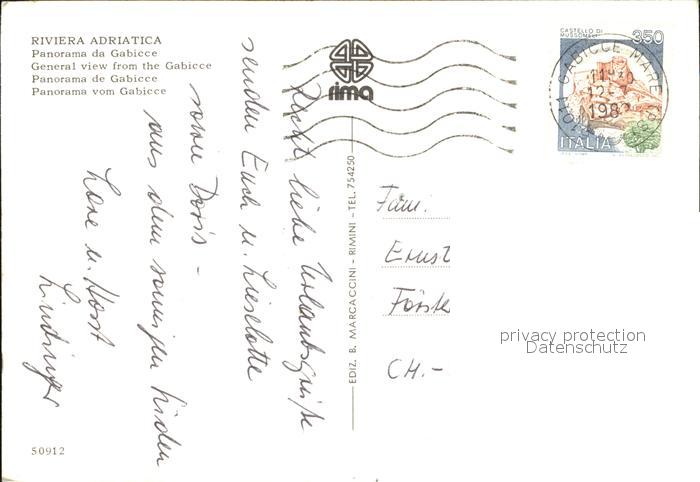 RIVIERA ADRIATICA
Panorama da Gabicce
General view from the Gabicce
Panorama de Gabicce
Panorama vom Gabicce
rima
CASTELLO DI
MUSSOMELI
350
GABICCE MARE
1982
ITALIA
Recht liebe Urlaubsgrüße
senden Euch u. Lieselotte
sowie Doris -
aus dem sonnigen Süden
Lore u. Horst
EDIZ. B. MARCACCINI - RIMINI - TEL. 754250
Fam.
Ernst
Förster
CH.-
privacy protection
Datenschutz
50912